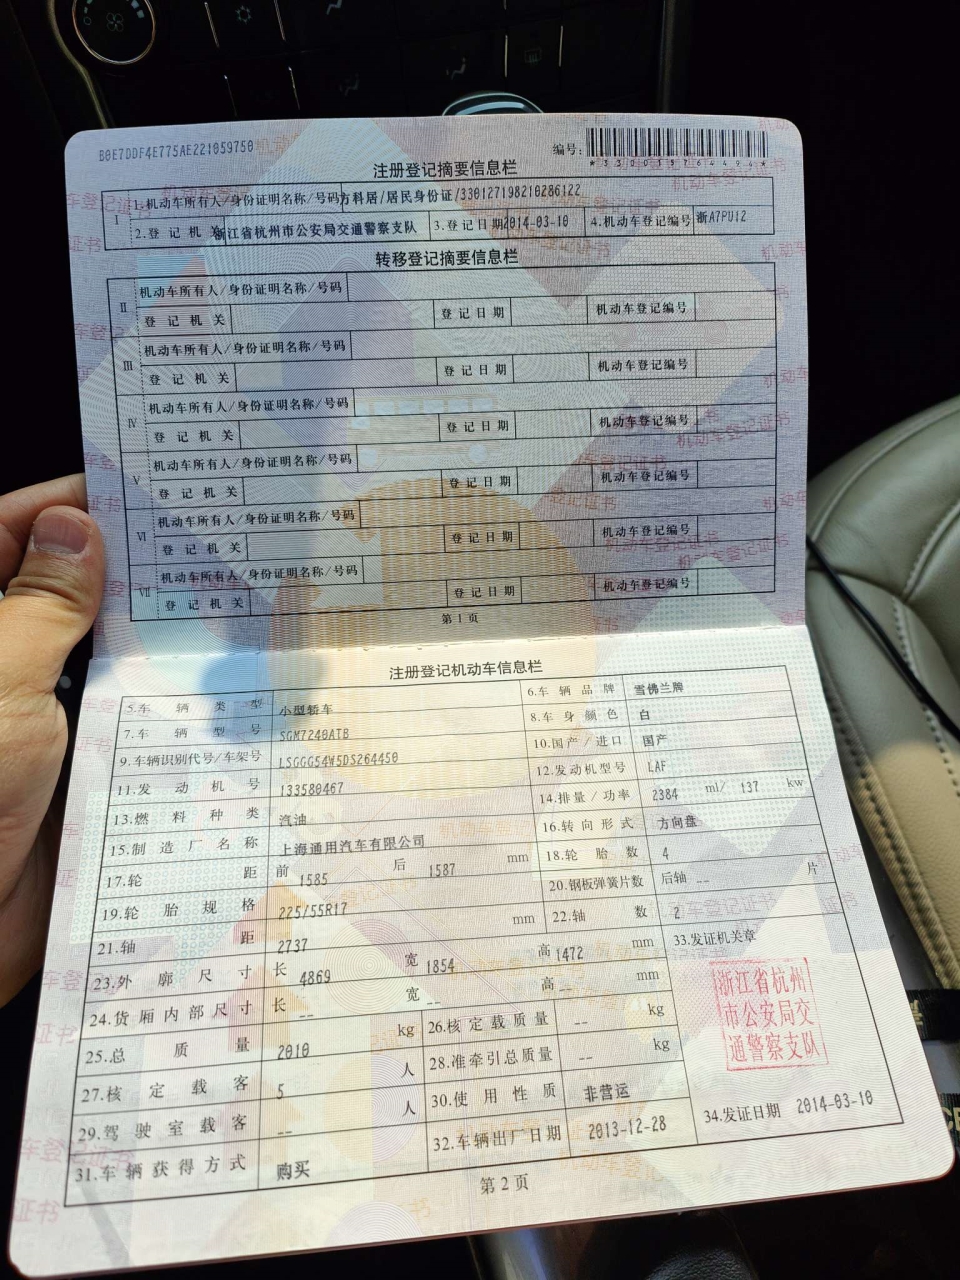 B0E7DDF4E775AE221059750
编号:
*330015764494*
注册登记摘要信息栏
I 1.机动车所有人/身份证明名称/号码 方科居/居民身份证/330127198210286122
2.登记机关 浙江省杭州市公安局交通警察支队 3.登记日期 2014-03-10 4.机动车登记编号 浙A7PU12
转移登记摘要信息栏
II 机动车所有人/身份证明名称/号码
登记机关 登记日期 机动车登记编号
III 机动车所有人/身份证明名称/号码
登记机关 登记日期 机动车登记编号
IV 机动车所有人/身份证明名称/号码
登记机关 登记日期 机动车登记编号
V 机动车所有人/身份证明名称/号码
登记机关 登记日期 机动车登记编号
VI 机动车所有人/身份证明名称/号码
登记机关 登记日期 机动车登记编号
VII 机动车所有人/身份证明名称/号码
登记机关 登记日期 机动车登记编号
第1页
注册登记机动车信息栏
5.车辆类型 小型轿车 6.车辆品牌 雪佛兰牌
7.车辆型号 SGM7240ATB 8.车身颜色 白
9.车辆识别代号/车架号 LSGGG54W5DS264450 10.国产/进口 国产
11.发动机号 133580467 12.发动机型号 LAF
13.燃料种类 汽油 14.排量/功率 2384 ml/ 137 kw
15.制造厂名称 上海通用汽车有限公司 16.转向形式 方向盘
17.轮距 前 1585 后 1587 mm 18.轮胎数 4
19.轮胎规格 225/55R17 20.钢板弹簧片数 后轴 -- 片
21.轴距 2737 mm 22.轴数 2
23.外廓尺寸 长 4869 宽 1854 高 1472 mm 33.发证机关章
24.货厢内部尺寸 长 -- 宽 -- 高 -- mm
浙江省杭州
市公安局交
通警察支队
25.总质量 2010 kg 26.核定载质量 -- kg
27.核定载客 5 人 28.准牵引总质量 -- kg
29.驾驶室载客 -- 人 30.使用性质 非营运
31.车辆获得方式 购买 32.车辆出厂日期 2013-12-28 34.发证日期 2014-03-10
第2页